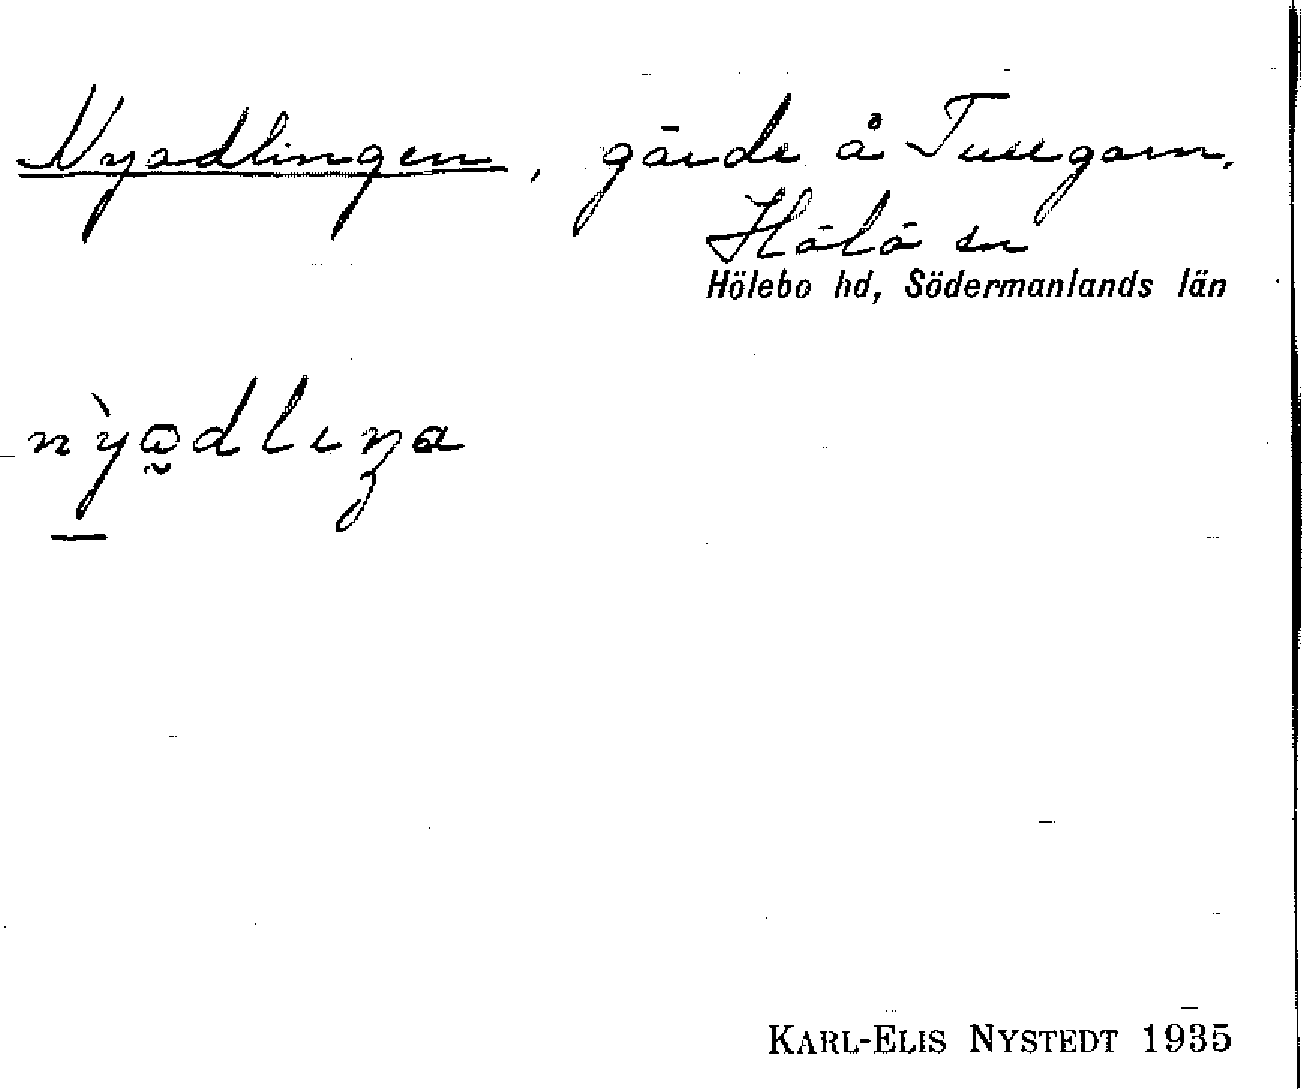 Nyodlingen, gärde å Tullgarn,
Hölö sn
Hölebo hd, Södermanlands län
KARL-ELIS NYSTEDT 1935